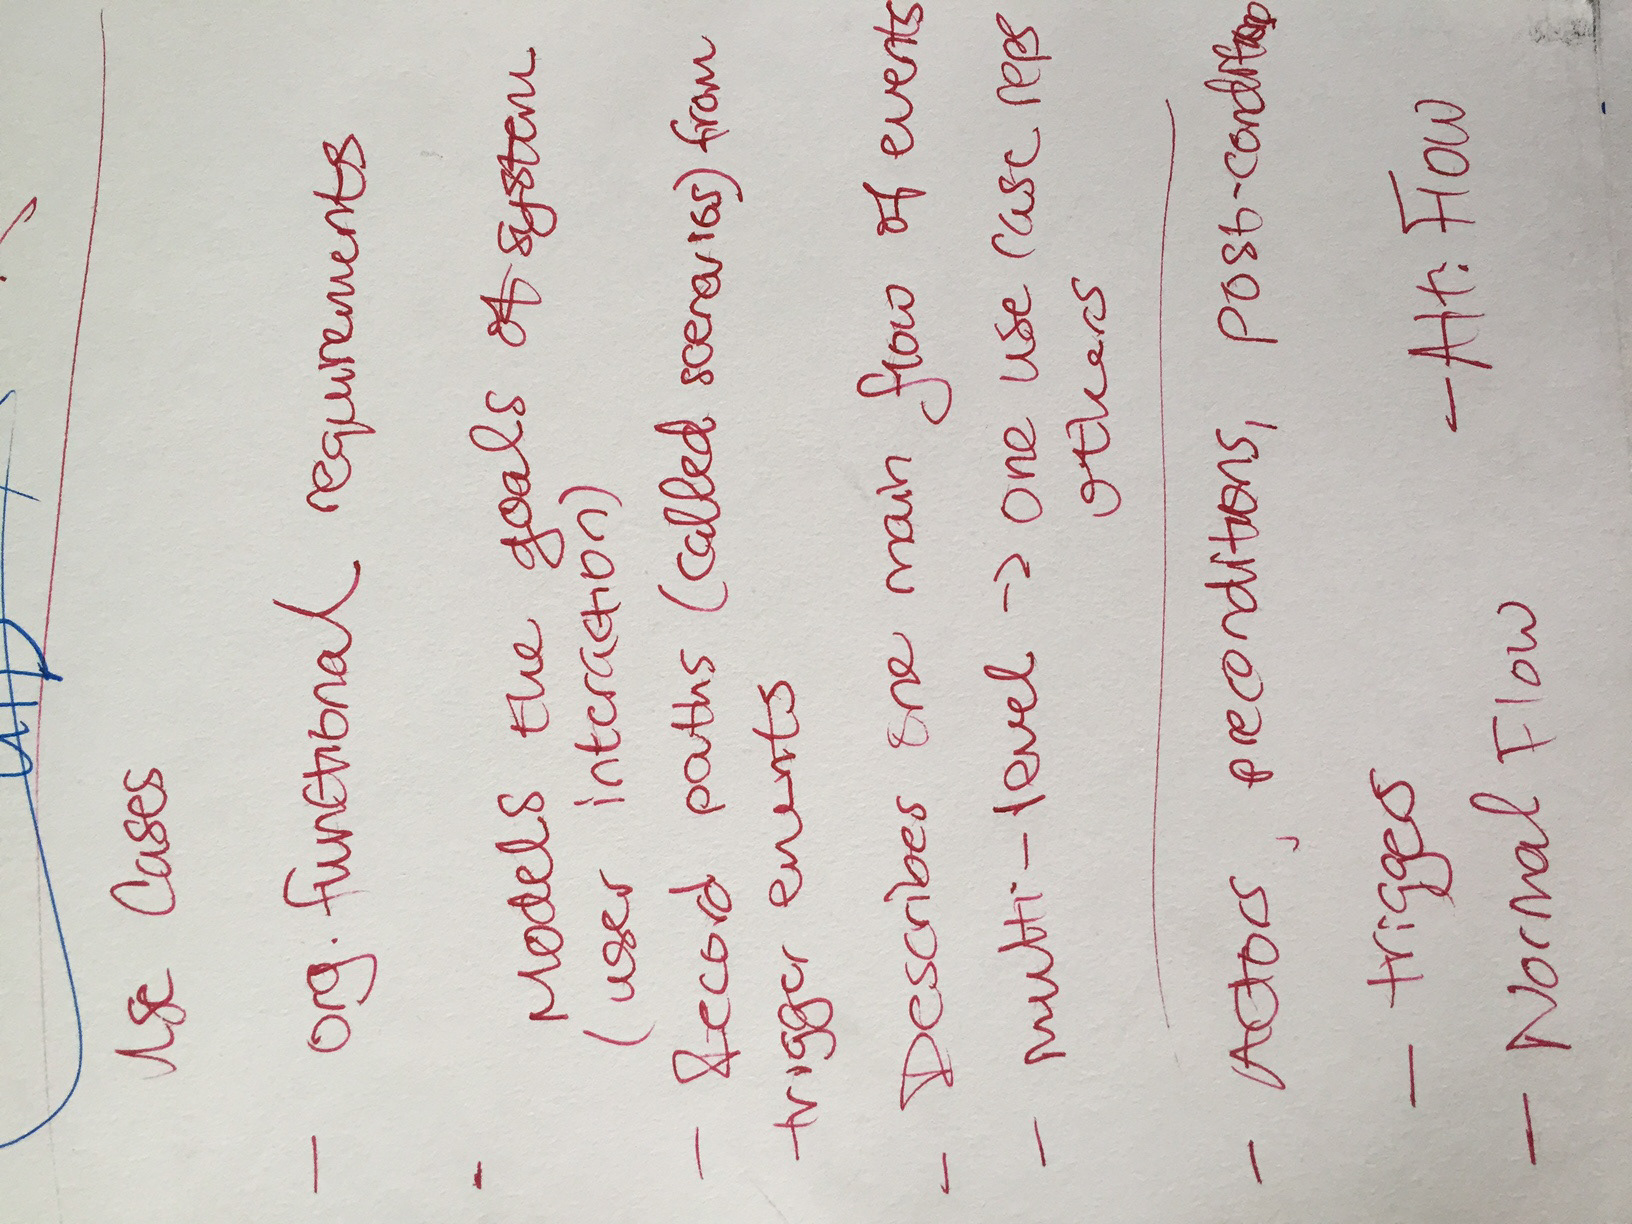 Use Cases
- org. functional requirements
- Models the goals of system
(user interaction)
- Record paths (called scenarios) from
trigger events
- Describes one main flow of events
- multi-level -> one use case reps
others
- Actors, preconditions, post-conditions
- triggers
- Normal Flow - Alt. Flow